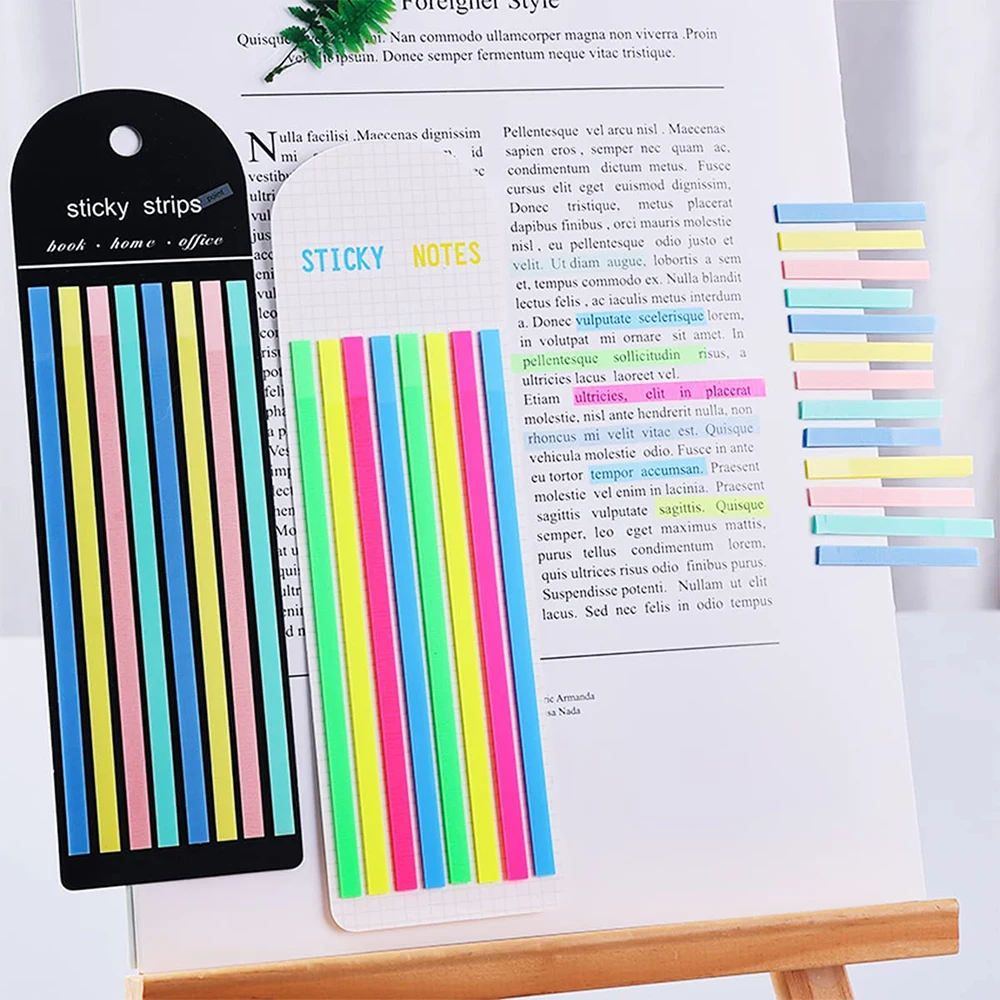 Foreigner Style
Quisque Nan commodo ullamcorper magna non viverra .Proin
velit ipsum. Donec semper fermentum neque vitae tristique.
sticky strips
point
book · home · office
STICKY NOTES
Nulla facilisi .Maecenas dignissim
mi id
vestibu ec
ultri
vul
jus
leo
Ves
Mo
d n
Pellentesque vel arcu nisl . Maecenas
sapien eros , semper nec quam ac,
condimentum dictum metus. Fusce
cursus elit eget euismod dignissim,
Donec tristique, metus placerat
dapibus finibus , orci mauris molestie
nisl , eu pellentesque odio justo et
velit. Ut diam augue, lobortis a sem
et, tempus commodo ex. Nulla blandit
lectus felis , ac iaculis metus interdum
a. Donec vulputate scelerisque lorem,
in volutpat mi ornare sit amet. In
pellentesque sollicitudin risus, a
ultricies lacus laoreet vel.
Etiam ultricies, elit in placerat
molestie, nisl ante hendrerit nulla, non
rhoncus mi velit vitae est. Quisque
vehicula molestie odio. Fusce in ante
eu tortor tempor accumsan. Praesent
molestie vel enim in lacinia. Praesent
sagittis vulputate sagittis. Quisque
semper, leo eget maximus mattis,
purus tellus condimentum lorem,
quis ultrices risus odio finibus purus.
Suspendisse potenti. Nullam ut elit
lacus. Sed nec felis in odio tempus
ric Armanda
sa Nada